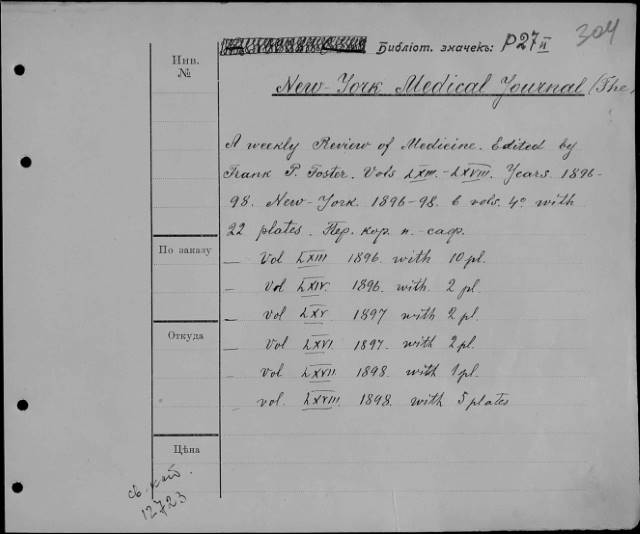 304
Библіот. значекъ: P27 II
New-York Medical Journal (The)
Инв.
№
A weekly Review of Medicine. Edited by
Frank P. Foster. Vols LXIII.-LXVIII. Years 1896-
98. New-York. 1896-98. 6 vols. 4º with
22 plates. Пер. кор. п.-саф.
По заказу
— Vol LXIII 1896. with 10 pl.
— Vol LXIV. 1896. with 2 pl.
— vol LXV 1897 with 2 pl.
Откуда
— Vol LXVI. 1897. with 2 pl.
— vol LXVII 1898. with 1 pl.
— vol. LXVIII. 1898. with 5 plates
Цѣна
12723